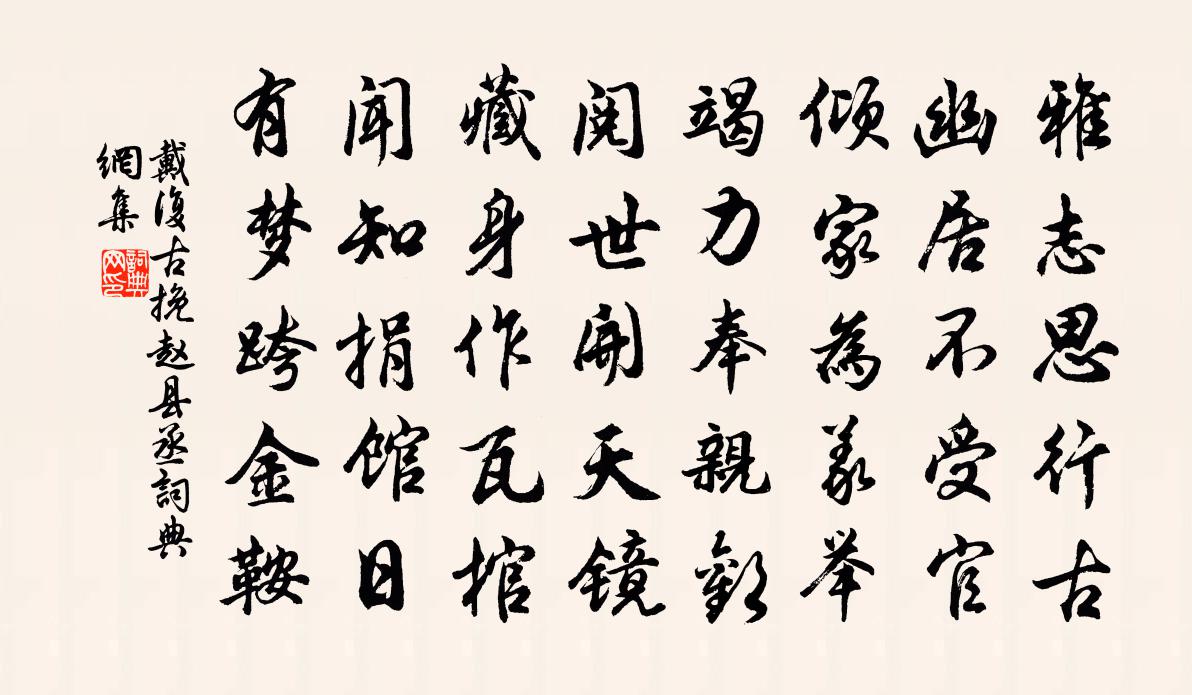 雅志思行古
幽居不受官
倾家為義举
竭力奉親歡
阅世開天镜
藏身作瓦棺
聞知捐馆日
有梦跨金鞍
戴復古挽赵县丞詞典
網集
詞典
网印